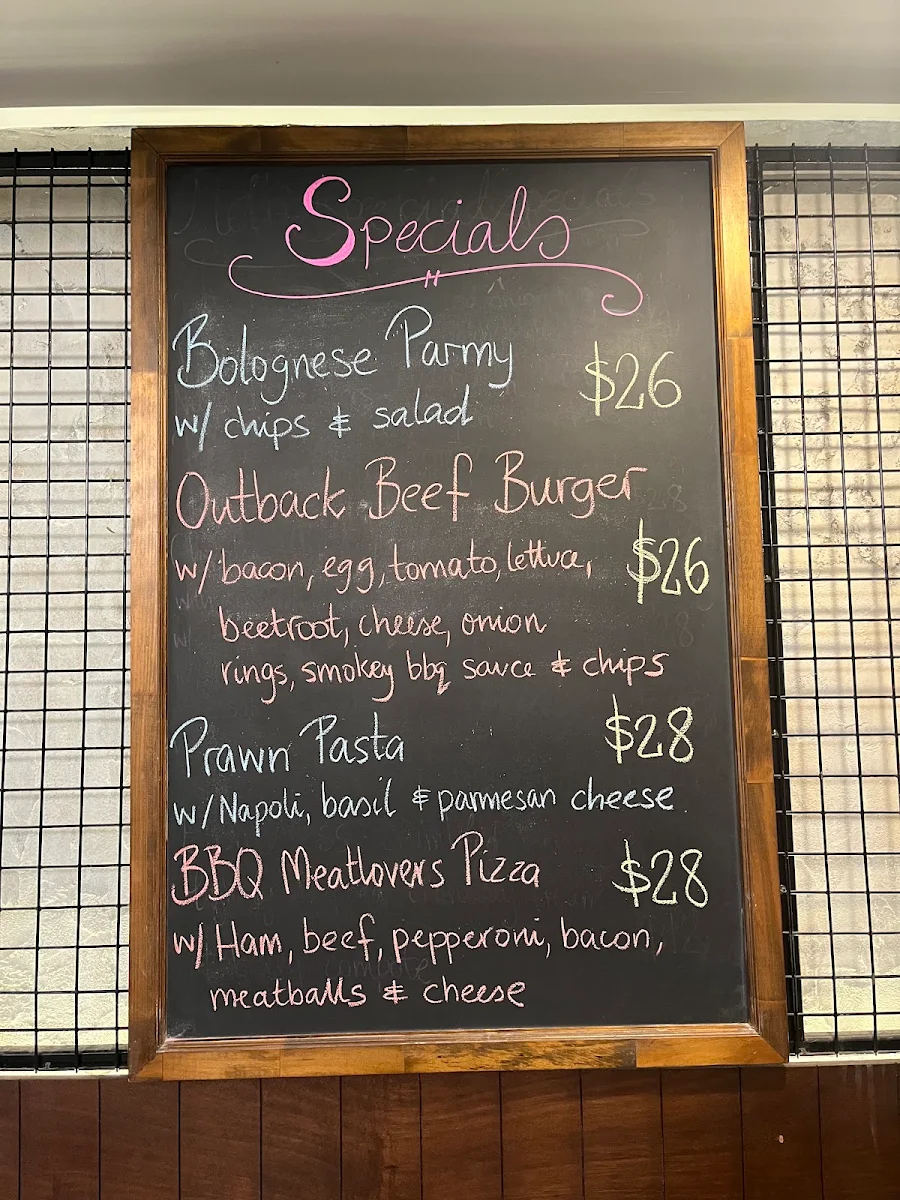 Specials
Bolognese Parmy
$26
w/ chips & salad
Outback Beef Burger
w/ bacon, egg, tomato, lettuce,
$26
beetroot, cheese, onion
rings, smokey bbq sauce & chips
Prawn Pasta
$28
w/ Napoli, basil & parmesan cheese
BBQ Meatlovers Pizza
$28
w/ Ham, beef, pepperoni, bacon,
meatballs & cheese